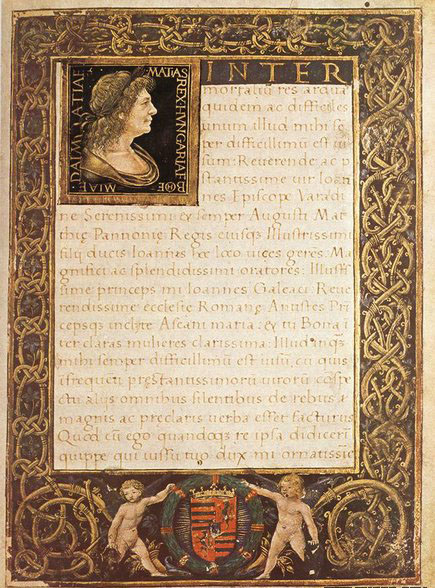 MATIAS REX HVNGARIAE BOE MIAE DALMATIAE
INTER
mortalium res arqua
quidem ac difficiles
unum illud mihi se
per difficillimu est ui
sum: Reverende ac p
stantissime uir Ioan
nes Episcope Varadi
ne Serenissimi & semper Augusti Mat
thie Pannonie Regis eiusq3 Illustrissimi
filij ducis Ioannis hoc loco uices geres: Ma
gnifici ac splendidissimi oratores: Illustris
sime princeps mi Ioannes Galeaci Reue
rendissime ecclesie Romane Antistes Pri
cepsq3 inclyte Ascani maria: & tu Bona i
ter claras mulieres clarissima: Illud inq3
mihi semper difficillimu est uisu, cu quis
i frequeti prestantissimoru uiroru cospe
ctu alijs omnibus silentibus de rebus
magnis ac preclaris uerba esset facturus
Quod cu ego quandoq3 re ipsa didiceri
quippe qui iussu tuo dux mi ornatissie